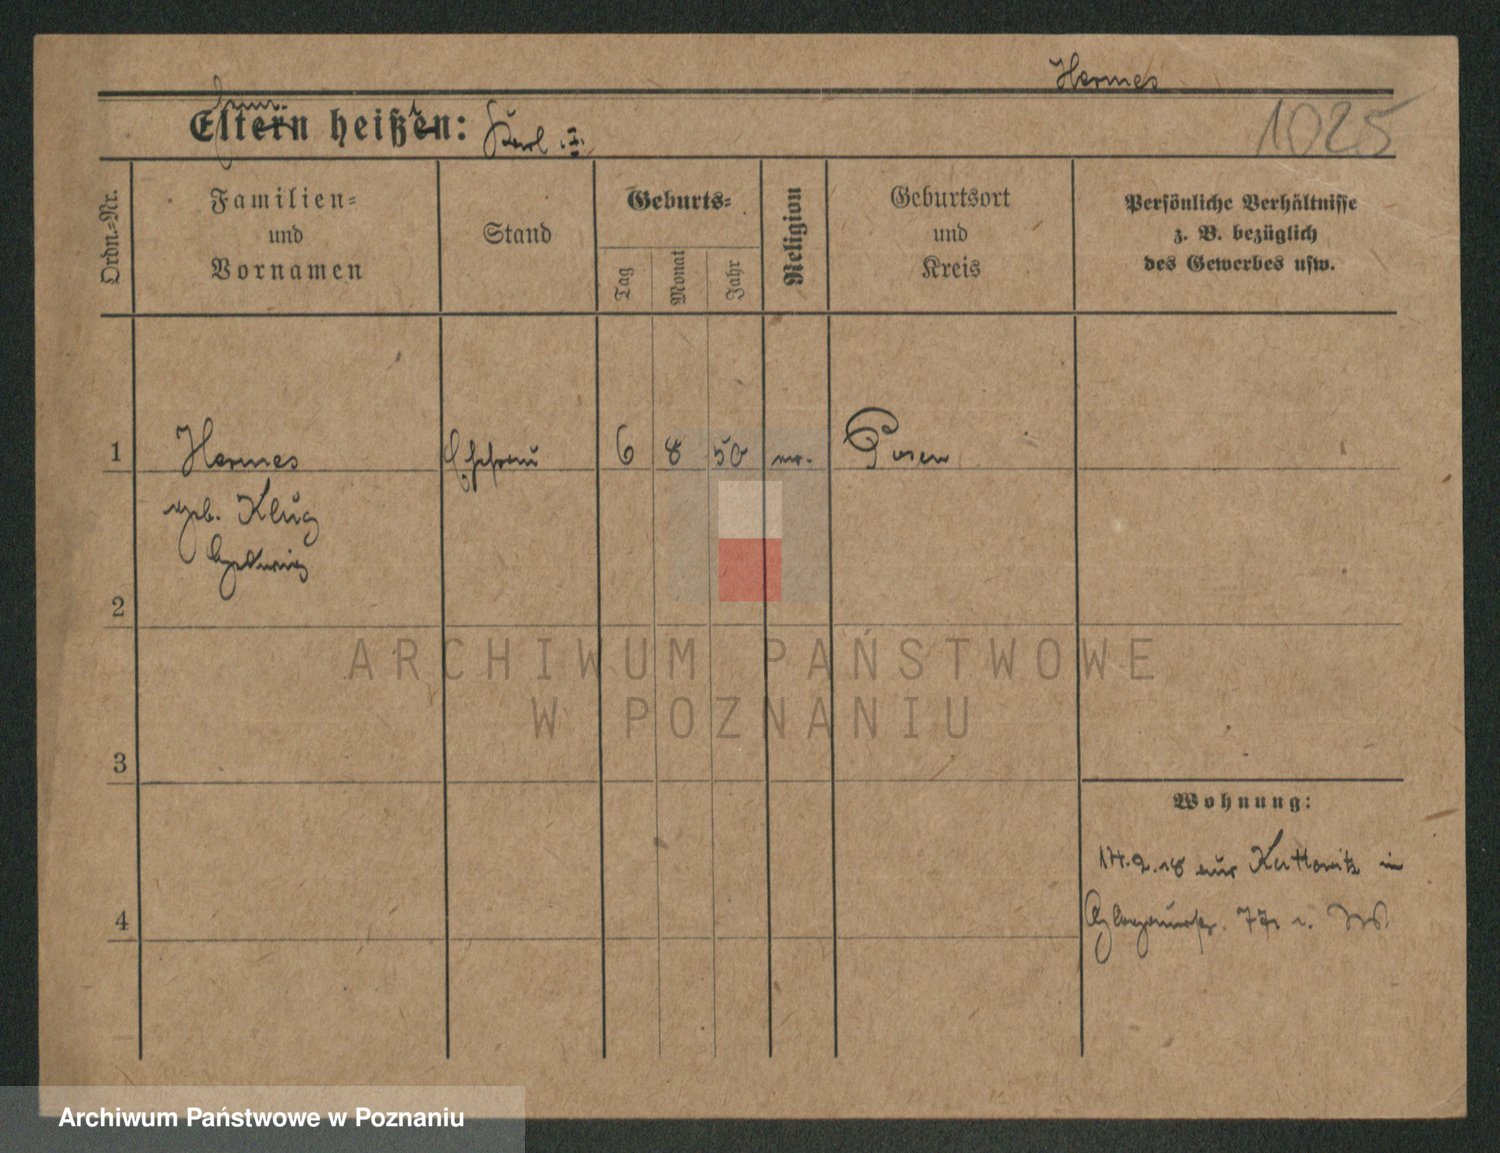 Hermes
Eltern heißen: Karl
1025
Ordn.-Nr.
Familien-
und
Vornamen
Stand
Geburts-
Tag
Monat
Jahr
Religion
Geburtsort
und
Kreis
Persönliche Verhältnisse
z. B. bezüglich
des Gewerbes usw.
1 Hermes Ehefrau 6 8 50 Posen
geb. Klug
Hedwig
2
ARCHIWUM PAŃSTWOWE
W POZNANIU
3
Wohnung:
18 aus Kattowitz in
4
Archiwum Państwowe w Poznaniu